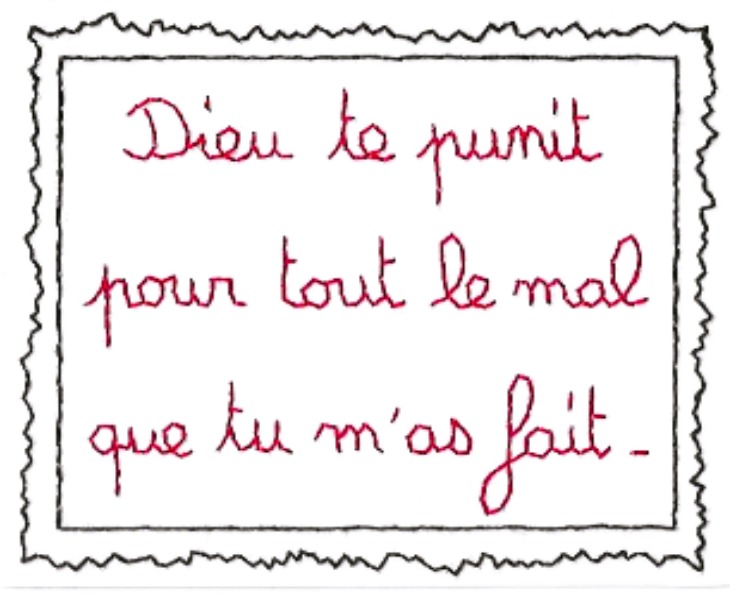 Dieu te punit
pour tout le mal
que tu m'as fait-